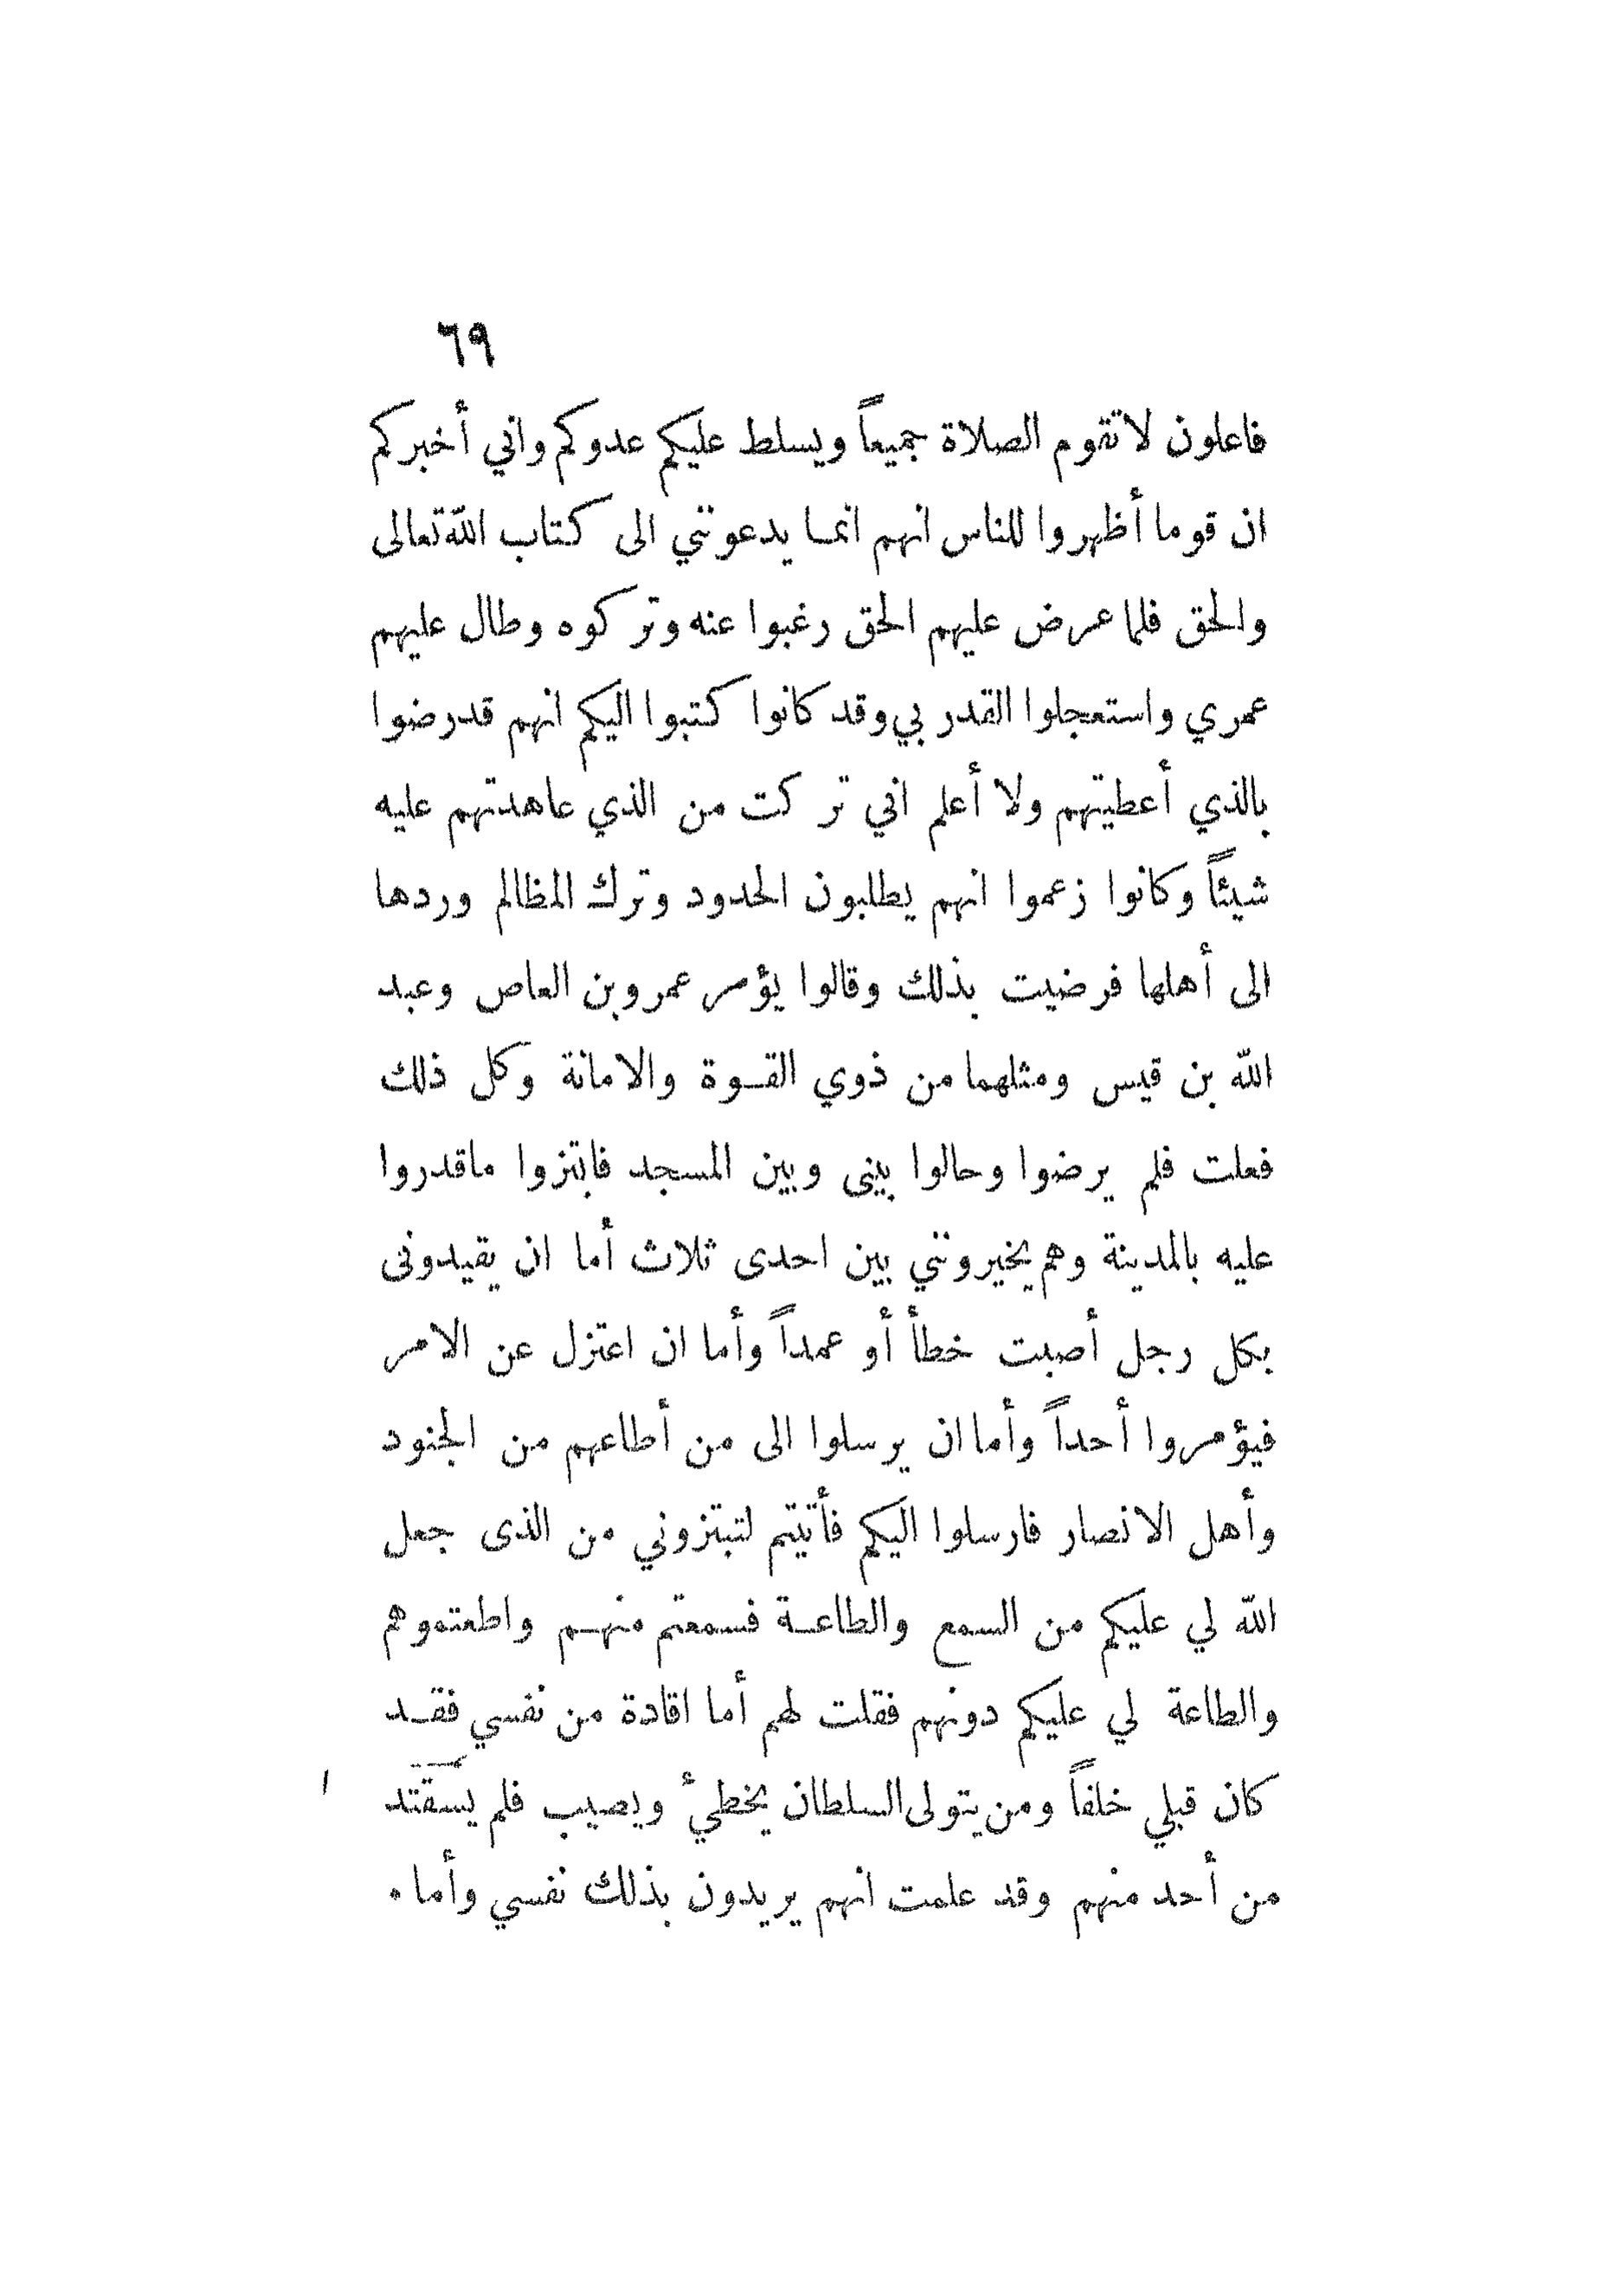 ٦٩
فاعلون لا تقوم الصلاة جميعاً ويسلط عليكم عدوكم واني أخبركم
ان قوما أظهروا للناس انهم انما يدعونني الى كتاب الله تعالى
والحق فلما عرض عليهم الحق رغبوا عنه وتركوه وطال عليهم
عمري واستعجلوا القدر بي وقد كانوا كتبوا اليكم انهم قد رضوا
بالذي أعطيتهم ولا أعلم اني تركت من الذي عاهدتهم عليه
شيئاً وكانوا زعموا انهم يطلبون الحدود وترك المظالم وردها
الى أهلها فرضيت بذلك وقالوا يؤمر عمرو بن العاص وعبد
الله بن قيس ومثلهما من ذوي القوة والامانة وكل ذلك
فعلت فلم يرضوا وحالوا بيني وبين المسجد فابتزوا ما قدروا
عليه بالمدينة وهم يخيرونني بين احدى ثلاث أما ان يقيدونى
بكل رجل أصبت خطأ أو عمداً وأما ان اعتزل عن الامر
فيؤمروا أحداً وأما ان يرسلوا الى من أطاعهم من الجنود
وأهل الانصار فارسلوا اليكم فأتيتم لتبتزوني من الذى جعل
الله لي عليكم من السمع والطاعة فسمعتم منهم واطعتموهم
والطاعة لي عليكم دونهم فقلت لهم أما اقادة من نفسي فقد
كان قبلي خلفاً ومن يتولى السلطان يخطئ ويصيب فلم يستقد
من أحد منهم وقد علمت انهم يريدون بذلك نفسي وأما